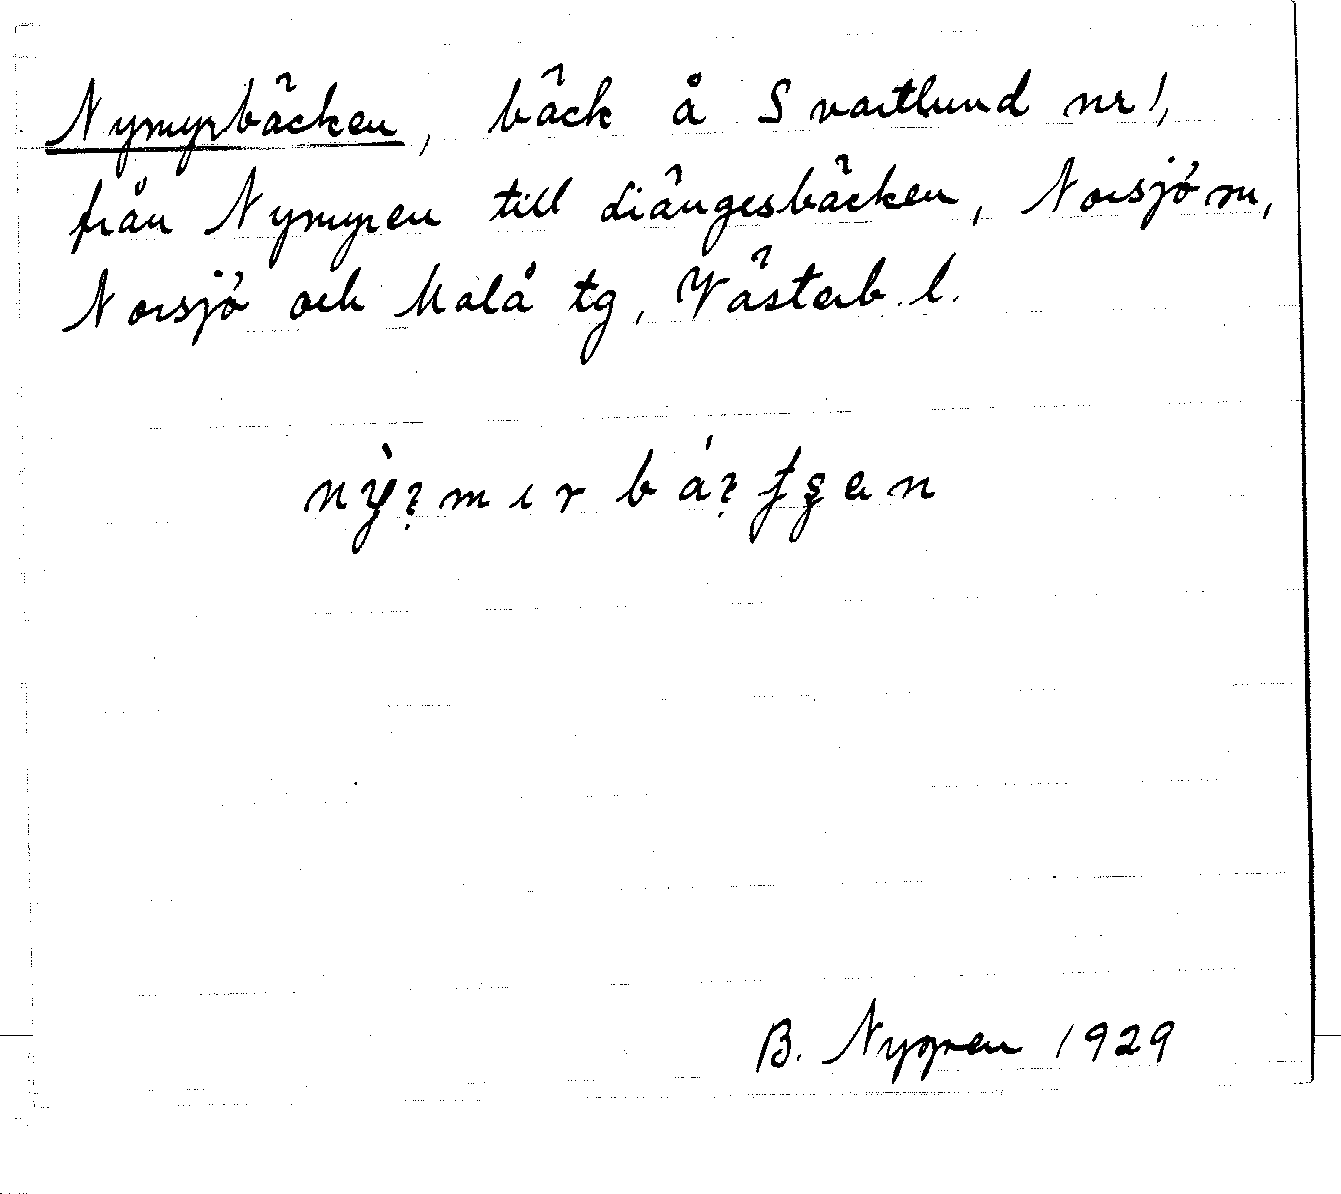 Nymyrbäcken, bäck å Svartlund nr 1,
från Nymyren till Liängesbäcken, Norsjö sn,
Norsjö och Malå tg, Västerb. l.
B. Nygren 1929